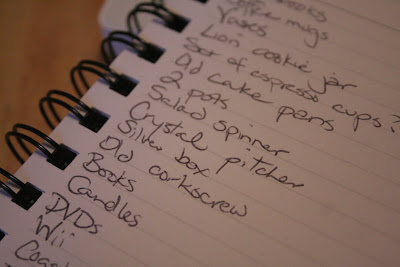 Coffee mugs
Vases
Lion cookie jar
Set of espresso cups?
Old cake pans
2 pots
Salad spinner
Crystal pitcher
Silver box
Old corkscrew
Books
Candles
DVDs
Wii